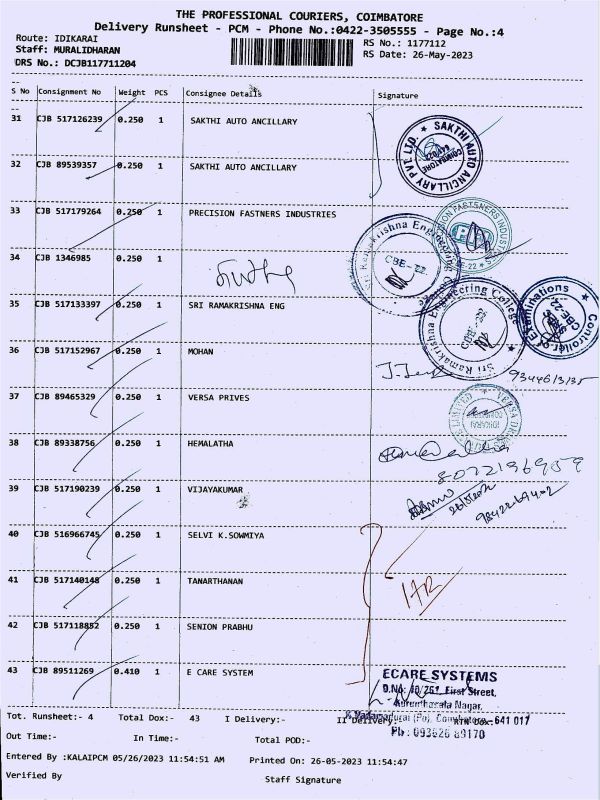 THE PROFESSIONAL COURIERS, COIMBATORE
Delivery Runsheet - PCM - Phone No.:0422-3505555 - Page No.:4
Route: IDIKARAI
RS No.: 1177112
Staff: MURALIDHARAN
RS Date: 26-May-2023
DRS No.: DCJB117711204
S No Consignment No Weight PCS Consignee Details Signature
31 CJB 517126239 0.250 1 SAKTHI AUTO ANCILLARY
SAKTHI AUTO ANCILLARY PVT. LTD.
32 CJB 89539357 0.250 1 SAKTHI AUTO ANCILLARY
33 CJB 517179264 0.250 1 PRECISION FASTNERS INDUSTRIES
34 CJB 1346985 0.250 1
Sri Ramakrishna Engineering
CBE-22.
35 CJB 517133397 0.250 1 SRI RAMAKRISHNA ENG
Sri Ramakrishna Engineering College
Controller of Examinations
36 CJB 517152967 0.250 1 MOHAN
37 CJB 89465329 0.250 1 VERSA PRIVES
38 CJB 89338756 0.250 1 HEMALATHA
8072196959
39 CJB 517190239 0.250 1 VIJAYAKUMAR
40 CJB 516966745 0.250 1 SELVI K.SOWMIYA
41 CJB 517140148 0.250 1 TANARTHANAN
42 CJB 517118852 0.250 1 SENION PRABHU
43 CJB 89511269 0.410 1 E CARE SYSTEM
ECARE SYSTEMS
First Street,
641 017
Tot. Runsheet:- 4 Total Dox:- 43 I Delivery:- II Delivery:- RTN Dox:-
Out Time:- In Time:- Total POD:-
Entered By :KALAIPCM 05/26/2023 11:54:51 AM Printed On: 26-05-2023 11:54:47
Verified By Staff Signature